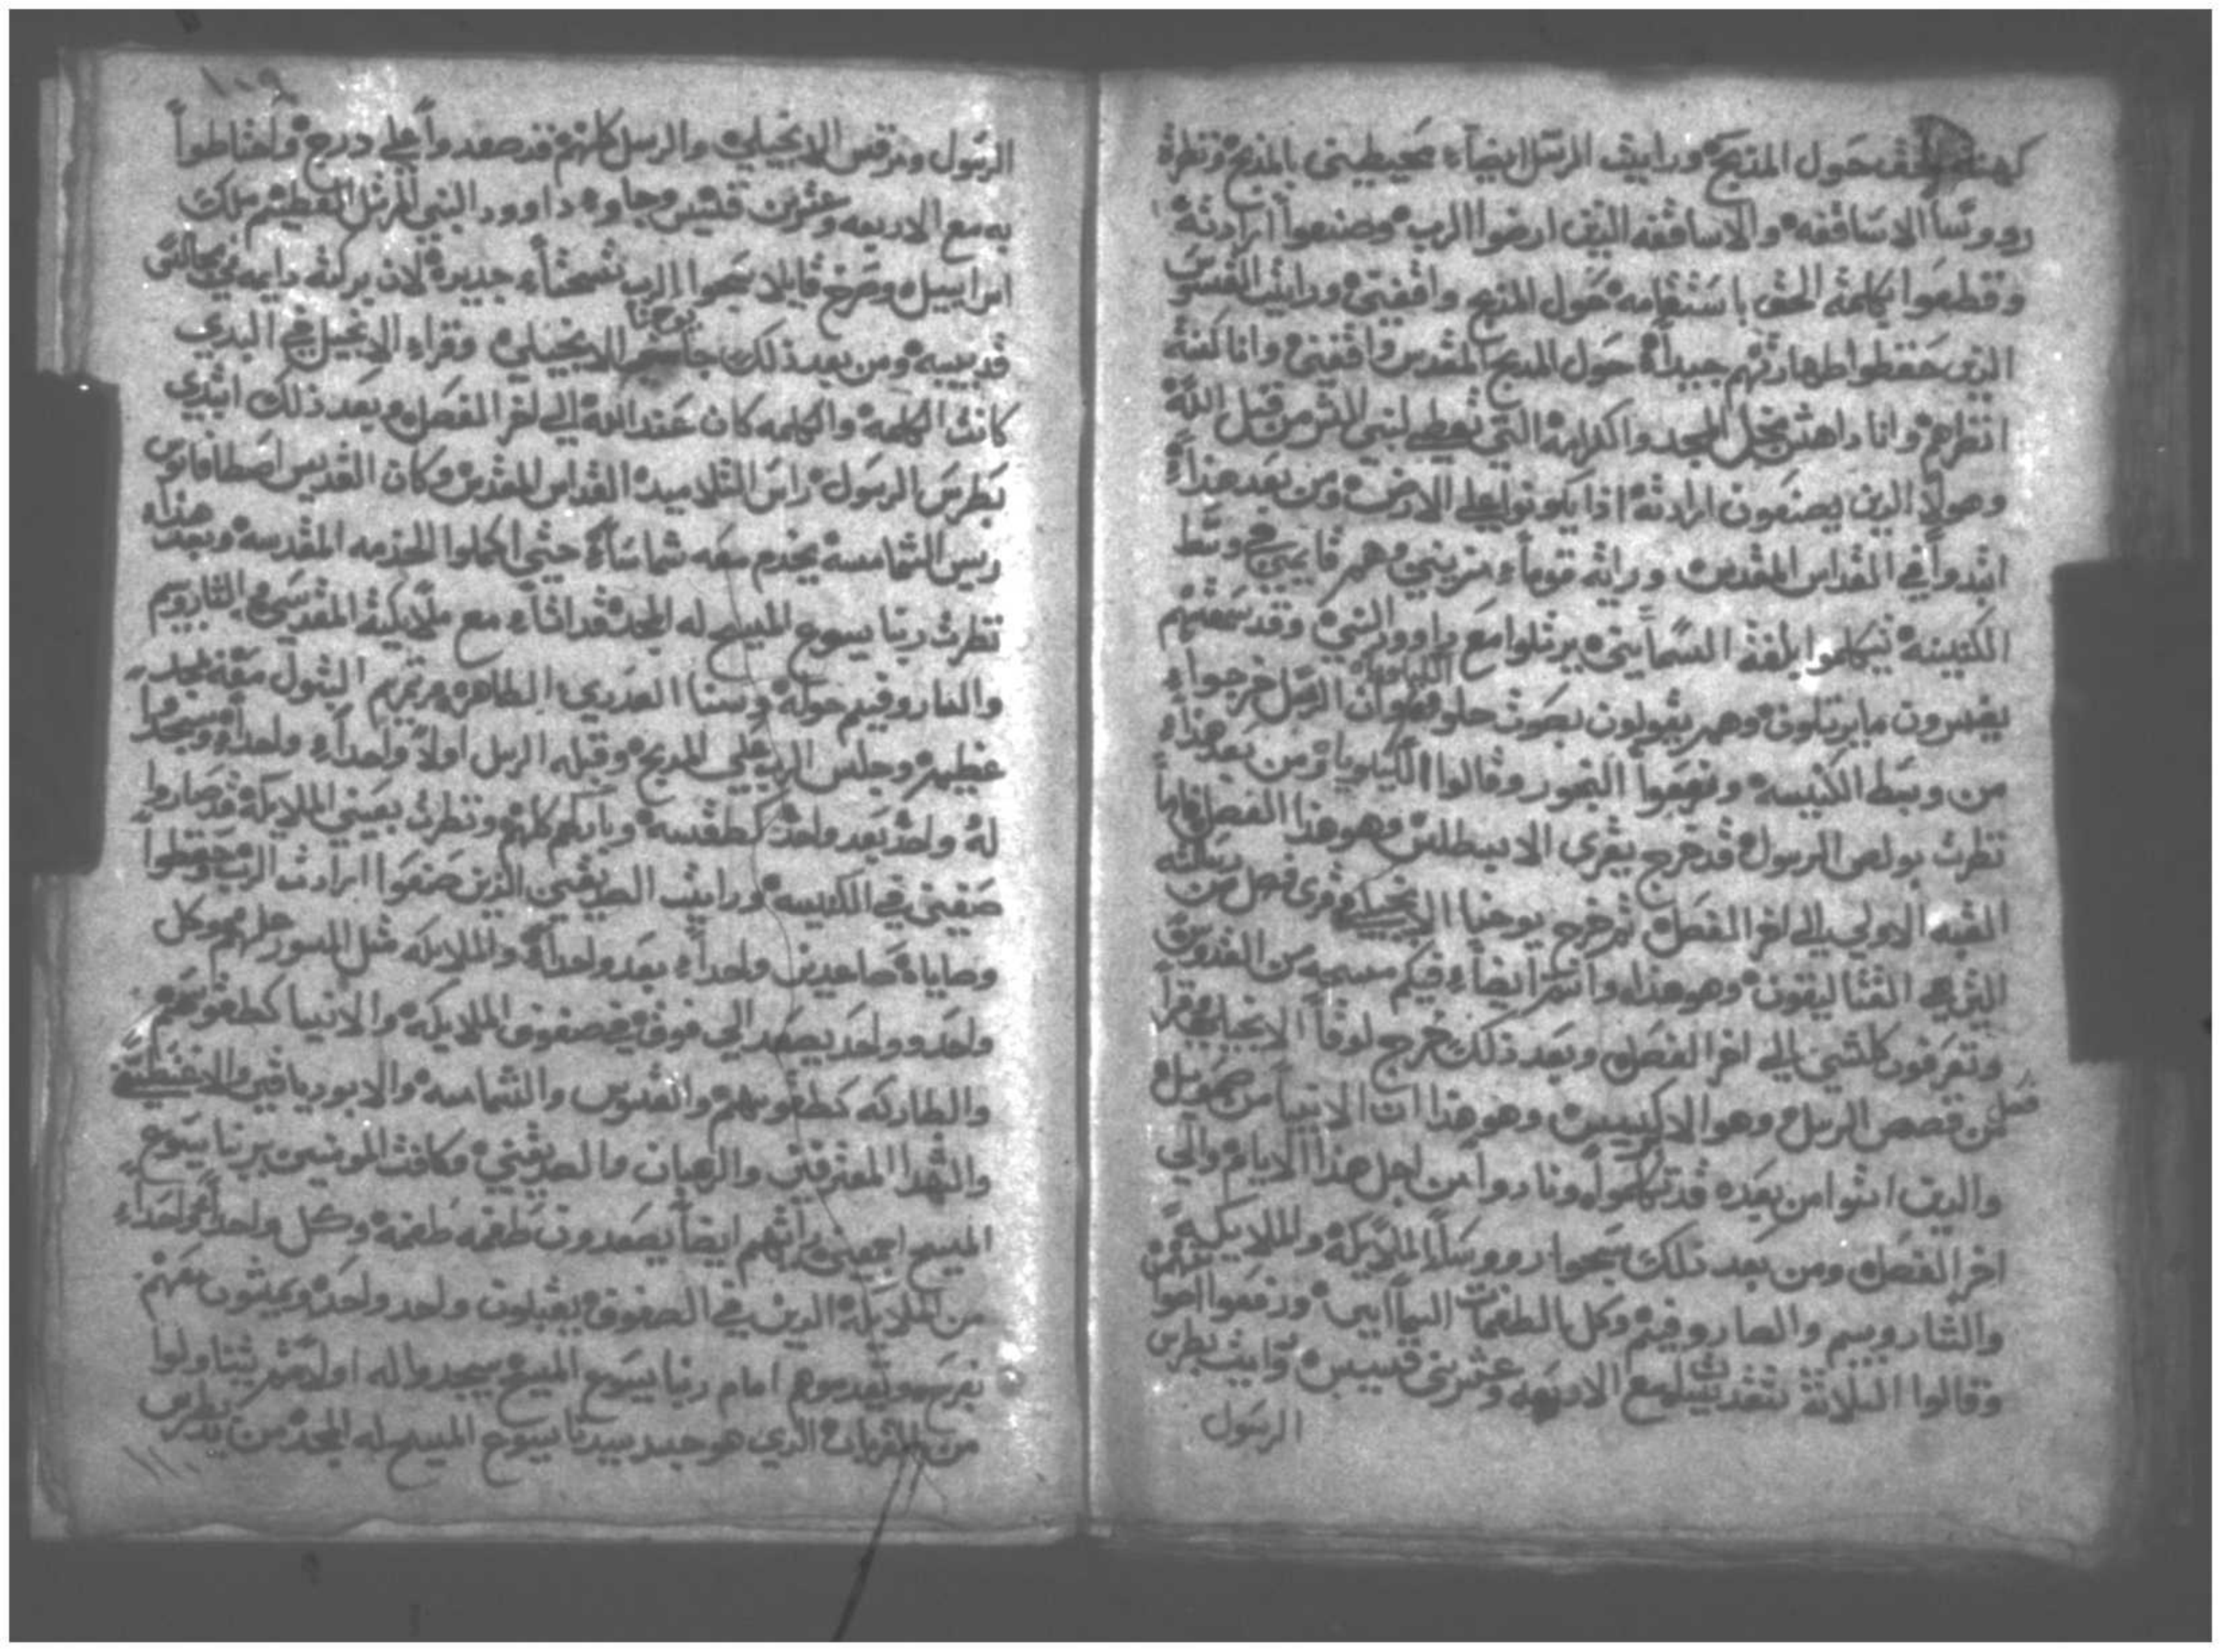 كهنة الحق حول المذبح ورايت الرسل ايضاء محيطيني بالمذبح ونظرة
رووسا الاساقفه والاساقفه الذين ارضوا الرب وصنعوا ارادته
وقطعوا بكلمة الحق باستقامه حول المذبح واقفين ورايت القسوس
الدين حفظوا طهارتهم جيداً حول المدبح المقدس واقفين وانا كنت
انظرهم وانا داهش نجل المجد والكرامه التي تعطي لبني البشر من قبل الله
وهولاء الدين يصنعون ارادته اذا يكونوا علي الارض ومن بعد هذاء
ابتدوا في القداس المقدس ورايه قوماء مزينين وهم قايمين في وسط
الكنيسه تيكلموا بلغة السمايين يرتلوا مع داوود النبي وقد سمعتهم
يفسرون ما يرتلون وهم يقولون بصوت حلو وان الرسل خرجوا
من وسط الكنيسه ورفعوا البخور وقالوا الكيلويا ومن بعد هذاء
نظرت بولص الرسول قد خرج يقري الابسطلس وهو هذا الفصل
الي اخر الفصل ثم خرج يوحنا الانجيلي وقرى فصل من رسالته
القتاليقون وهو هذا وانتم ايضاء فيكم مسحه من القدوس
وتعرفون كلشي الي اخر الفصل وبعد ذلك خرج لوقا الانجيلي وقرا
فصل من قصص الرسل وهو الابركسيس وهو هذا ان الانبيا من صمويل
والدين اتوا من بعده قد تكلموا ونادوا من اجل هذا الايام والي
اخر الفصل ومن بعد ذلك سبحوا رووسا الملايكة والملايكة
والشاروبيم والصاروفيم وكل الطغمات السماايين ورفعوا اصواتهم
وقالوا الثلاثة تقديسات مع الاربعه وعشرين قسيس ورايت بطرس
الرسول
١٠٩
الرسول ومرقس الانجيلي والرسل كلهم قد صعدوا علي درج واحتاطوا
به مع الاربعه وعشرين قسيس وجاوه داوود النبي المرتل العظيم ملك
اسراييل وصرخ قايلا سبحوا الرب تسبحتاء جديدة لان بركته دايمه في مجالس
قديسيه ومن بعد ذلك جا يوحنا الانجيلي وقراء الانجيل في البدي
كانت الكلمة والكلمه كان عند الله الي اخر الفصل وبعد ذلك ابتدي
بطرس الرسول راس التلاميد القداس المقدس وكان القديس اصطافانوس
ريس الشمامسة يخدم معه شماساء حتي اكملوا الخدمه المقدسه وبعد هذاء
نظرت ربنا يسوع المسيح له المجد قد اتاء مع ملايكته المقدسين والشاروبيم
والصاروفيم حوله وستنا العدري الطاهره مريم البتول معه بمجد
عظيم وجلس الرب علي المدبح وقبله الرسل اولا واحداء واحدا وسجدوا
له واحد بعد واحد كطقسه وباركهم كلهم ونظرت بعيني الملايكة قد صاروا
صفين في الكنيسه ورايت الصديقين الذين صنعوا ارادت الرب وحفظوا
وصاياه صاعدين واحداء بعد واحداء والملايكه مثل السور حولهم وكل
واحد وواحد يصعد الي فوق في صفوف الملايكه والانبيا كطغوتهم
والبطاركه كطغوتهم والقسوس والشمامسه والابودياقنين والاغنسطين
والشهدا المعترفين والرهبان والصديقين وكافت المومنين بربنا يسوع
المسيح اجمعين رايتهم ايضا يصعدون طغمه طغمة وكل واحداء واحداء
من الملايكة الدين في الصفوف يقبلون واحد واحد ويمشون معهم
بفرح ويقدموهم امام ربنا يسوع المسيح يسجدوا له اولا ثم يتناولوا
من القربان الدي هو جسد سيدنا يسوع المسيح له المجد من يد بطرس
١١٠